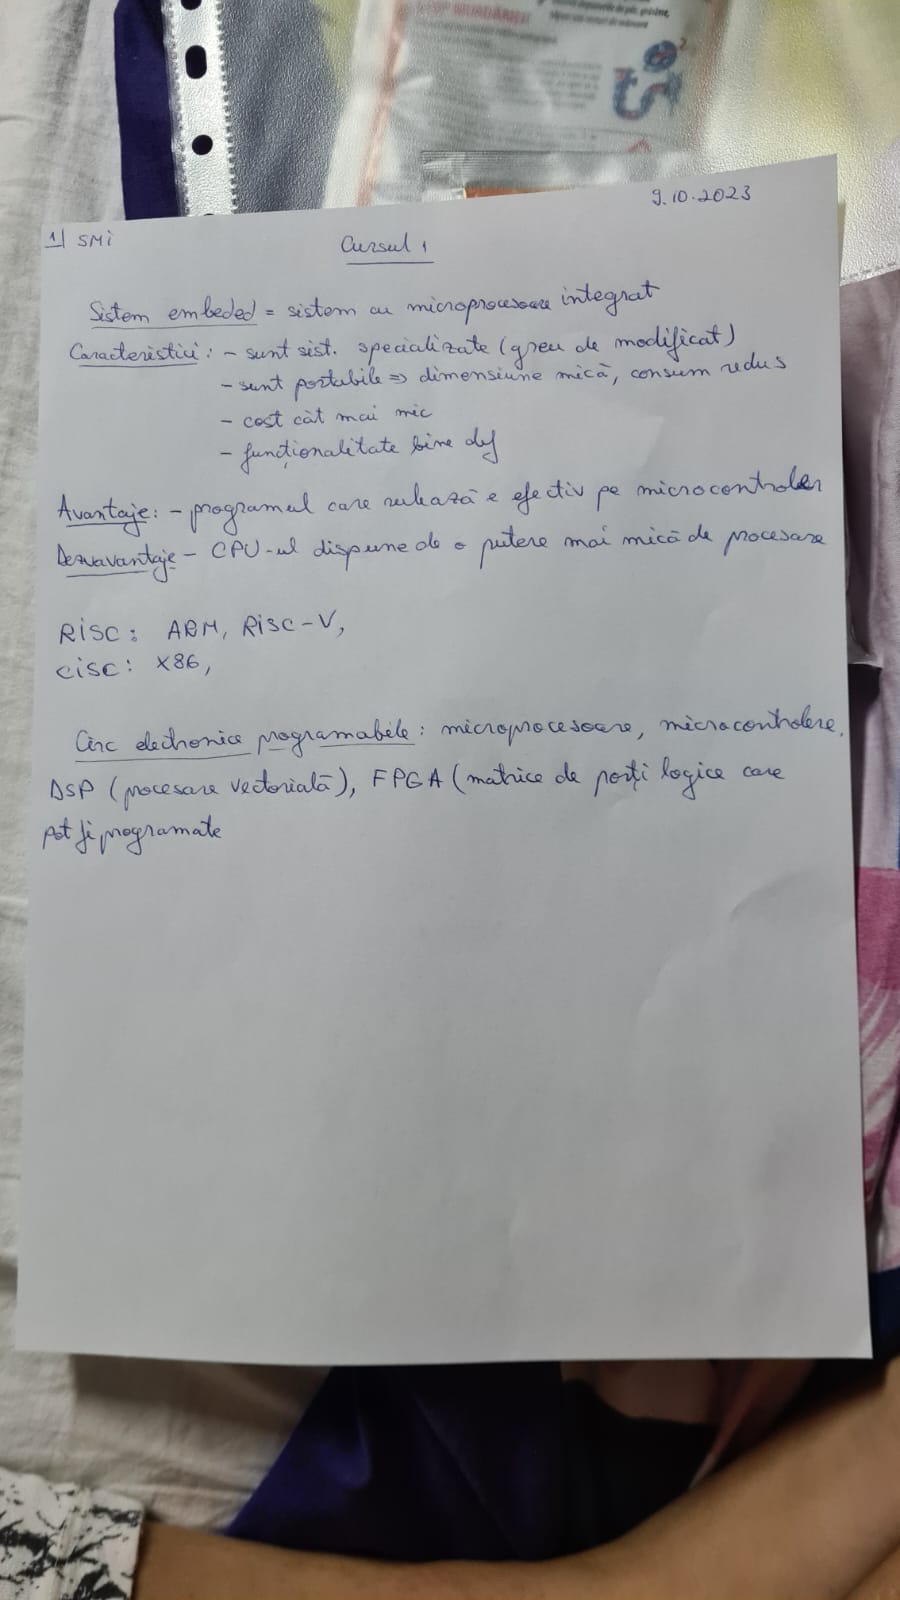 STOP MURDĂRIEI!
9.10.2023
1| SMi
Cursul 1
Sistem embeded = sistem cu microprocesoare integrat
Caracteristici: - sunt sist. specializate (greu de modificat)
- sunt portabile => dimensiune mică, consum redus
- cost cât mai mic
- funcționalitate bine def
Avantaje: - programul care rulează e efectiv pe microcontroler
Dezavantaje - CPU-ul dispune de o putere mai mică de procesare
RISC: ARM, RISC-V,
CISC: X86,
Circ electronice programabile: microprocesoare, microcontrolere,
DSP (procesare vectorială), FPGA (matrice de porți logice care
pot fi programate